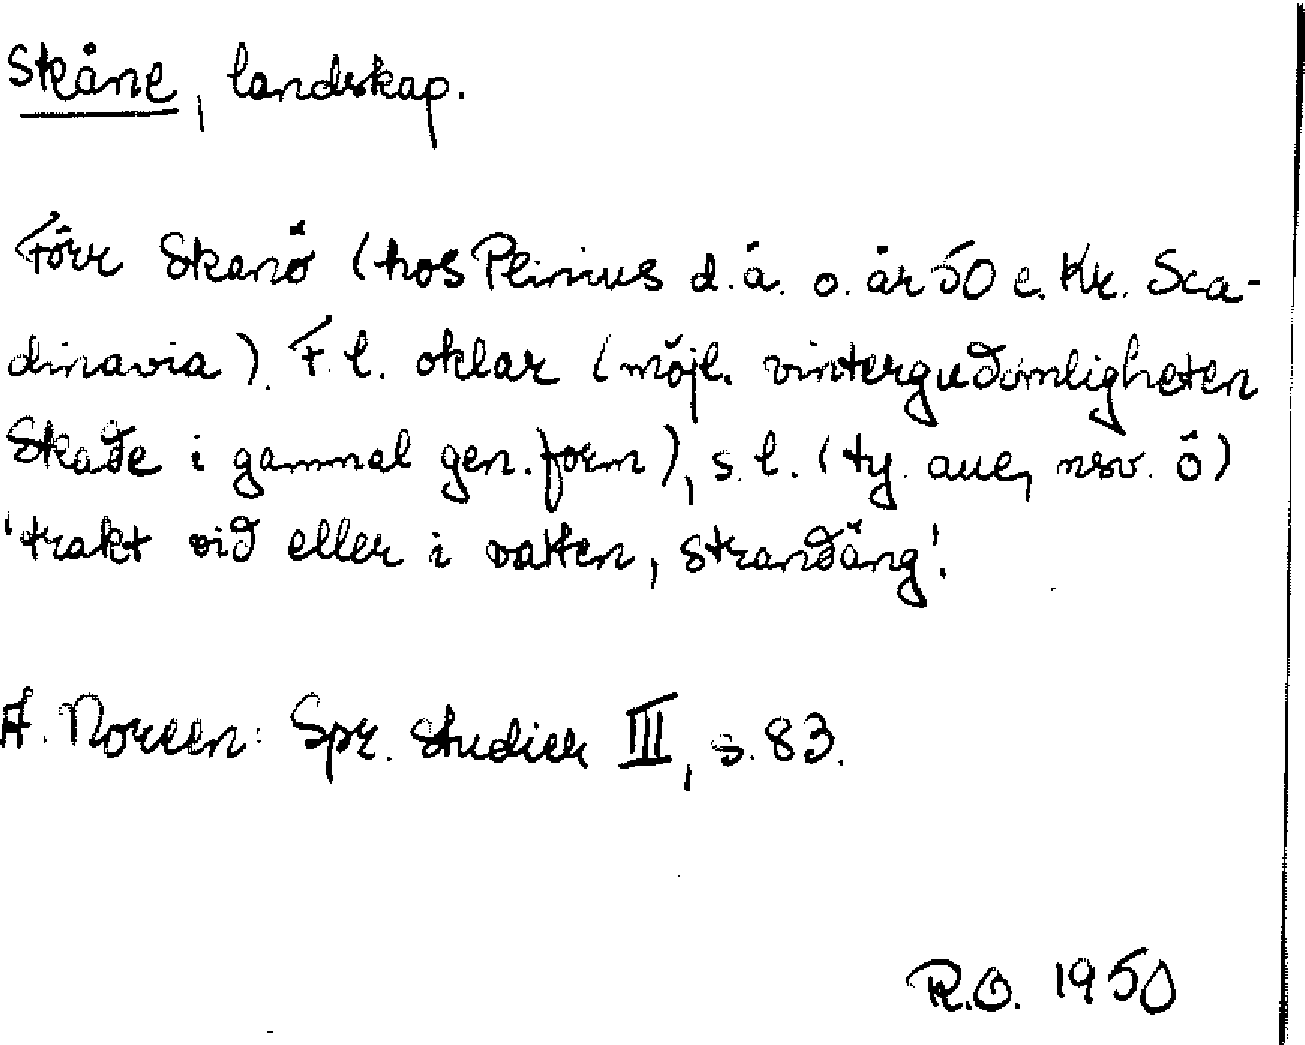 Skåne, landskap.
Förr Skanö (hos Plinius d.ä. o. år 50 e. Kr. Sca-
dinavia). F.l. oklar (möjl. vintergudomligheten
Skade i gammal gen. form), s.l. (ty. aue, nsv. ö)
'trakt vid eller i vatten, strandäng'.
A. Noreen: Spr. studier III, s. 83.
R.O. 1950